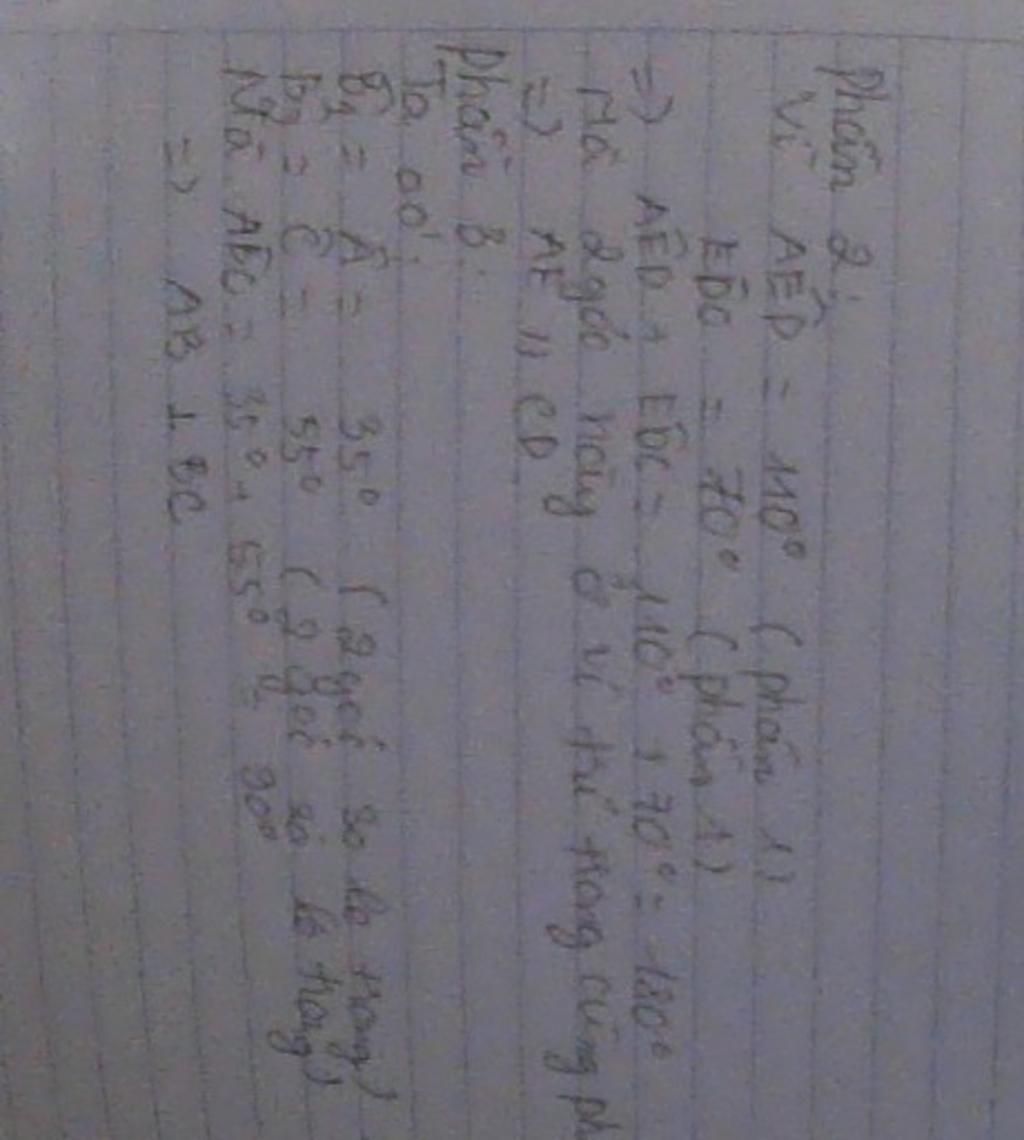 Phần 2:
Vì AÊD = 110° (phần 1)
EDC = 70° (phần 1)
=> AÊD + EDC = 110° + 70° = 180°
Mà 2 góc này ở vị trí trong cùng ph
=> AE // CD
Phần 3:
Ta có:
B̂1 = Â = 35° (2 góc so le trong)
B̂2 = Ĉ = 55° (2 góc so le trong)
Mà AB̂C = 35° + 55° = 90°
=> AB ⊥ BC